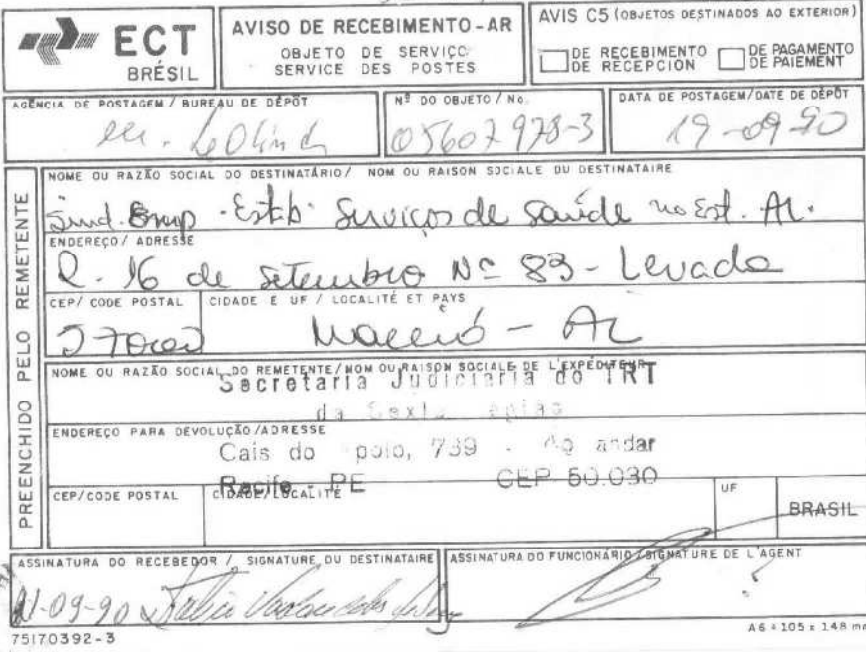 ECT
BRÉSIL
AVISO DE RECEBIMENTO-AR
OBJETO DE SERVIÇO
SERVICE DES POSTES
AVIS C5 (OBJETOS DESTINADOS AO EXTERIOR)
DE RECEBIMENTO
DE RECEPCION
DE PAGAMENTO
DE PAIEMENT
AGÊNCIA DE POSTAGEM / BUREAU DE DÉPÔT
Nº DO OBJETO / No.
05607978-3
DATA DE POSTAGEM/DATE DE DÉPÔT
19-09-90
PREENCHIDO PELO REMETENTE
NOME OU RAZÃO SOCIAL DO DESTINATÁRIO/ NOM OU RAISON SOCIALE DU DESTINATAIRE
Sind. Emp. Estab. Serviços de Saúde no Est. AL.
ENDEREÇO/ ADRESSE
R. 16 de setembro Nº 83 - Levada
CEP/ CODE POSTAL
CIDADE E UF / LOCALITÉ ET PAYS
Maceió - AL
NOME OU RAZÃO SOCIAL DO REMETENTE/NOM OU RAISON SOCIALE DE L'EXPÉDITEUR
Secretaria Judiciária do TRT
da Sexta
ENDEREÇO PARA DEVOLUÇÃO/ADRESSE
Cais do polo, 739 - andar
Recife - PE CEP 50.030
CEP/CODE POSTAL
CIDADE/LOCALITÉ
UF
BRASIL
ASSINATURA DO RECEBEDOR / SIGNATURE DU DESTINATAIRE
ASSINATURA DO FUNCIONÁRIO/SIGNATURE DE L'AGENT
21-09-90
75170392-3
A6 = 105 x 148 mm